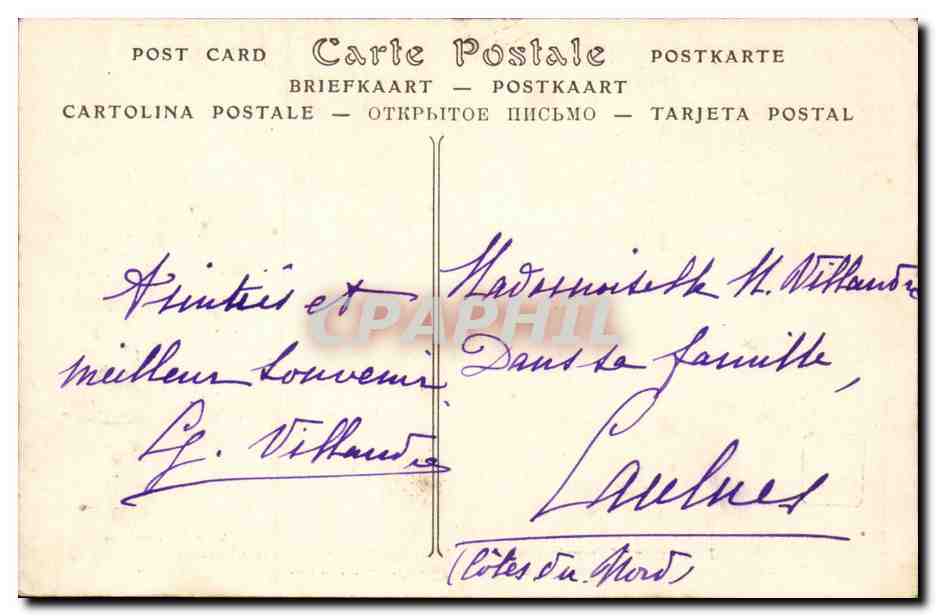 POST CARD Carte Postale POSTKARTE
BRIEFKAART — POSTKAART
CARTOLINA POSTALE — ОТКРЫТОЕ ПИСЬМО — TARJETA POSTAL
Amitiés et
meilleur souvenir
G. Villandre
Mademoiselle M. Villandre
Dans sa famille,
Caulnes
(Côtes du Nord)
CPAPHIL